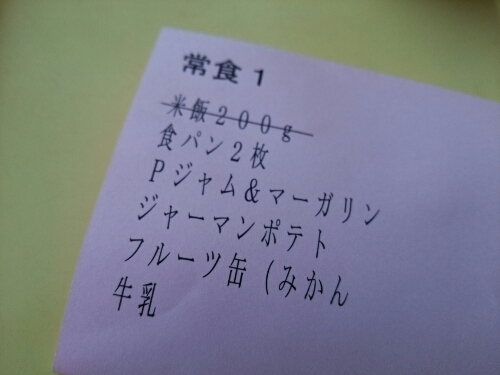 常食1
米飯200g
食パン2枚
Pジャム&マーガリン
ジャーマンポテト
フルーツ缶(みかん
牛乳